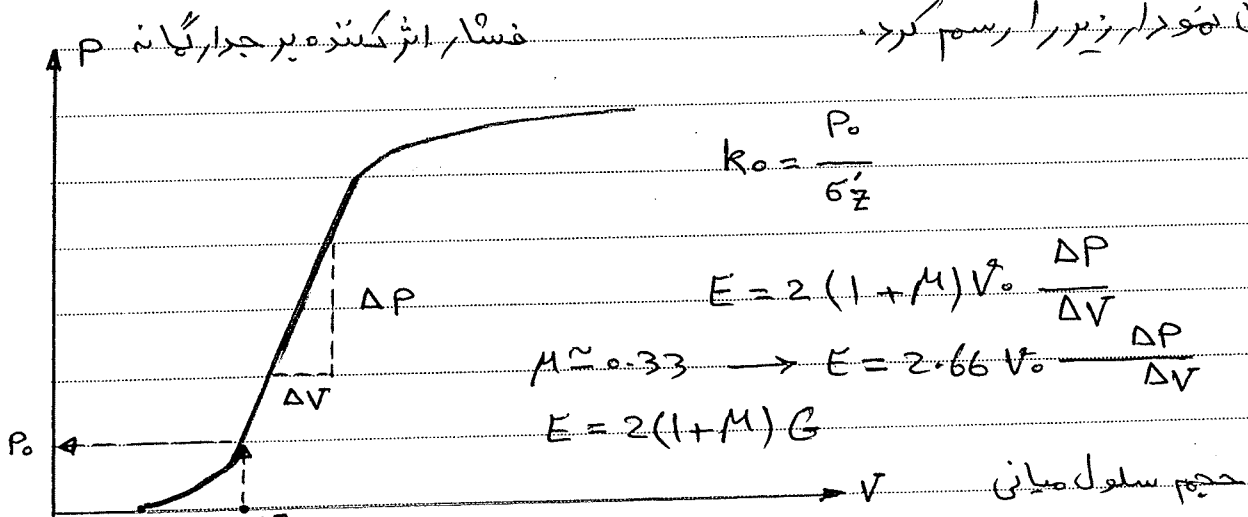 نمودار زیر را رسم کرد.
P فشار اثر کننده بر جدار گمانه
k₀ = P₀ / σ′z
ΔP
E = 2 (1 + μ) V₀ ΔP / ΔV
μ ≃ 0.33 → E = 2.66 V₀ ΔP / ΔV
ΔV
E = 2(1+μ) G
P₀
V حجم سلول میانی